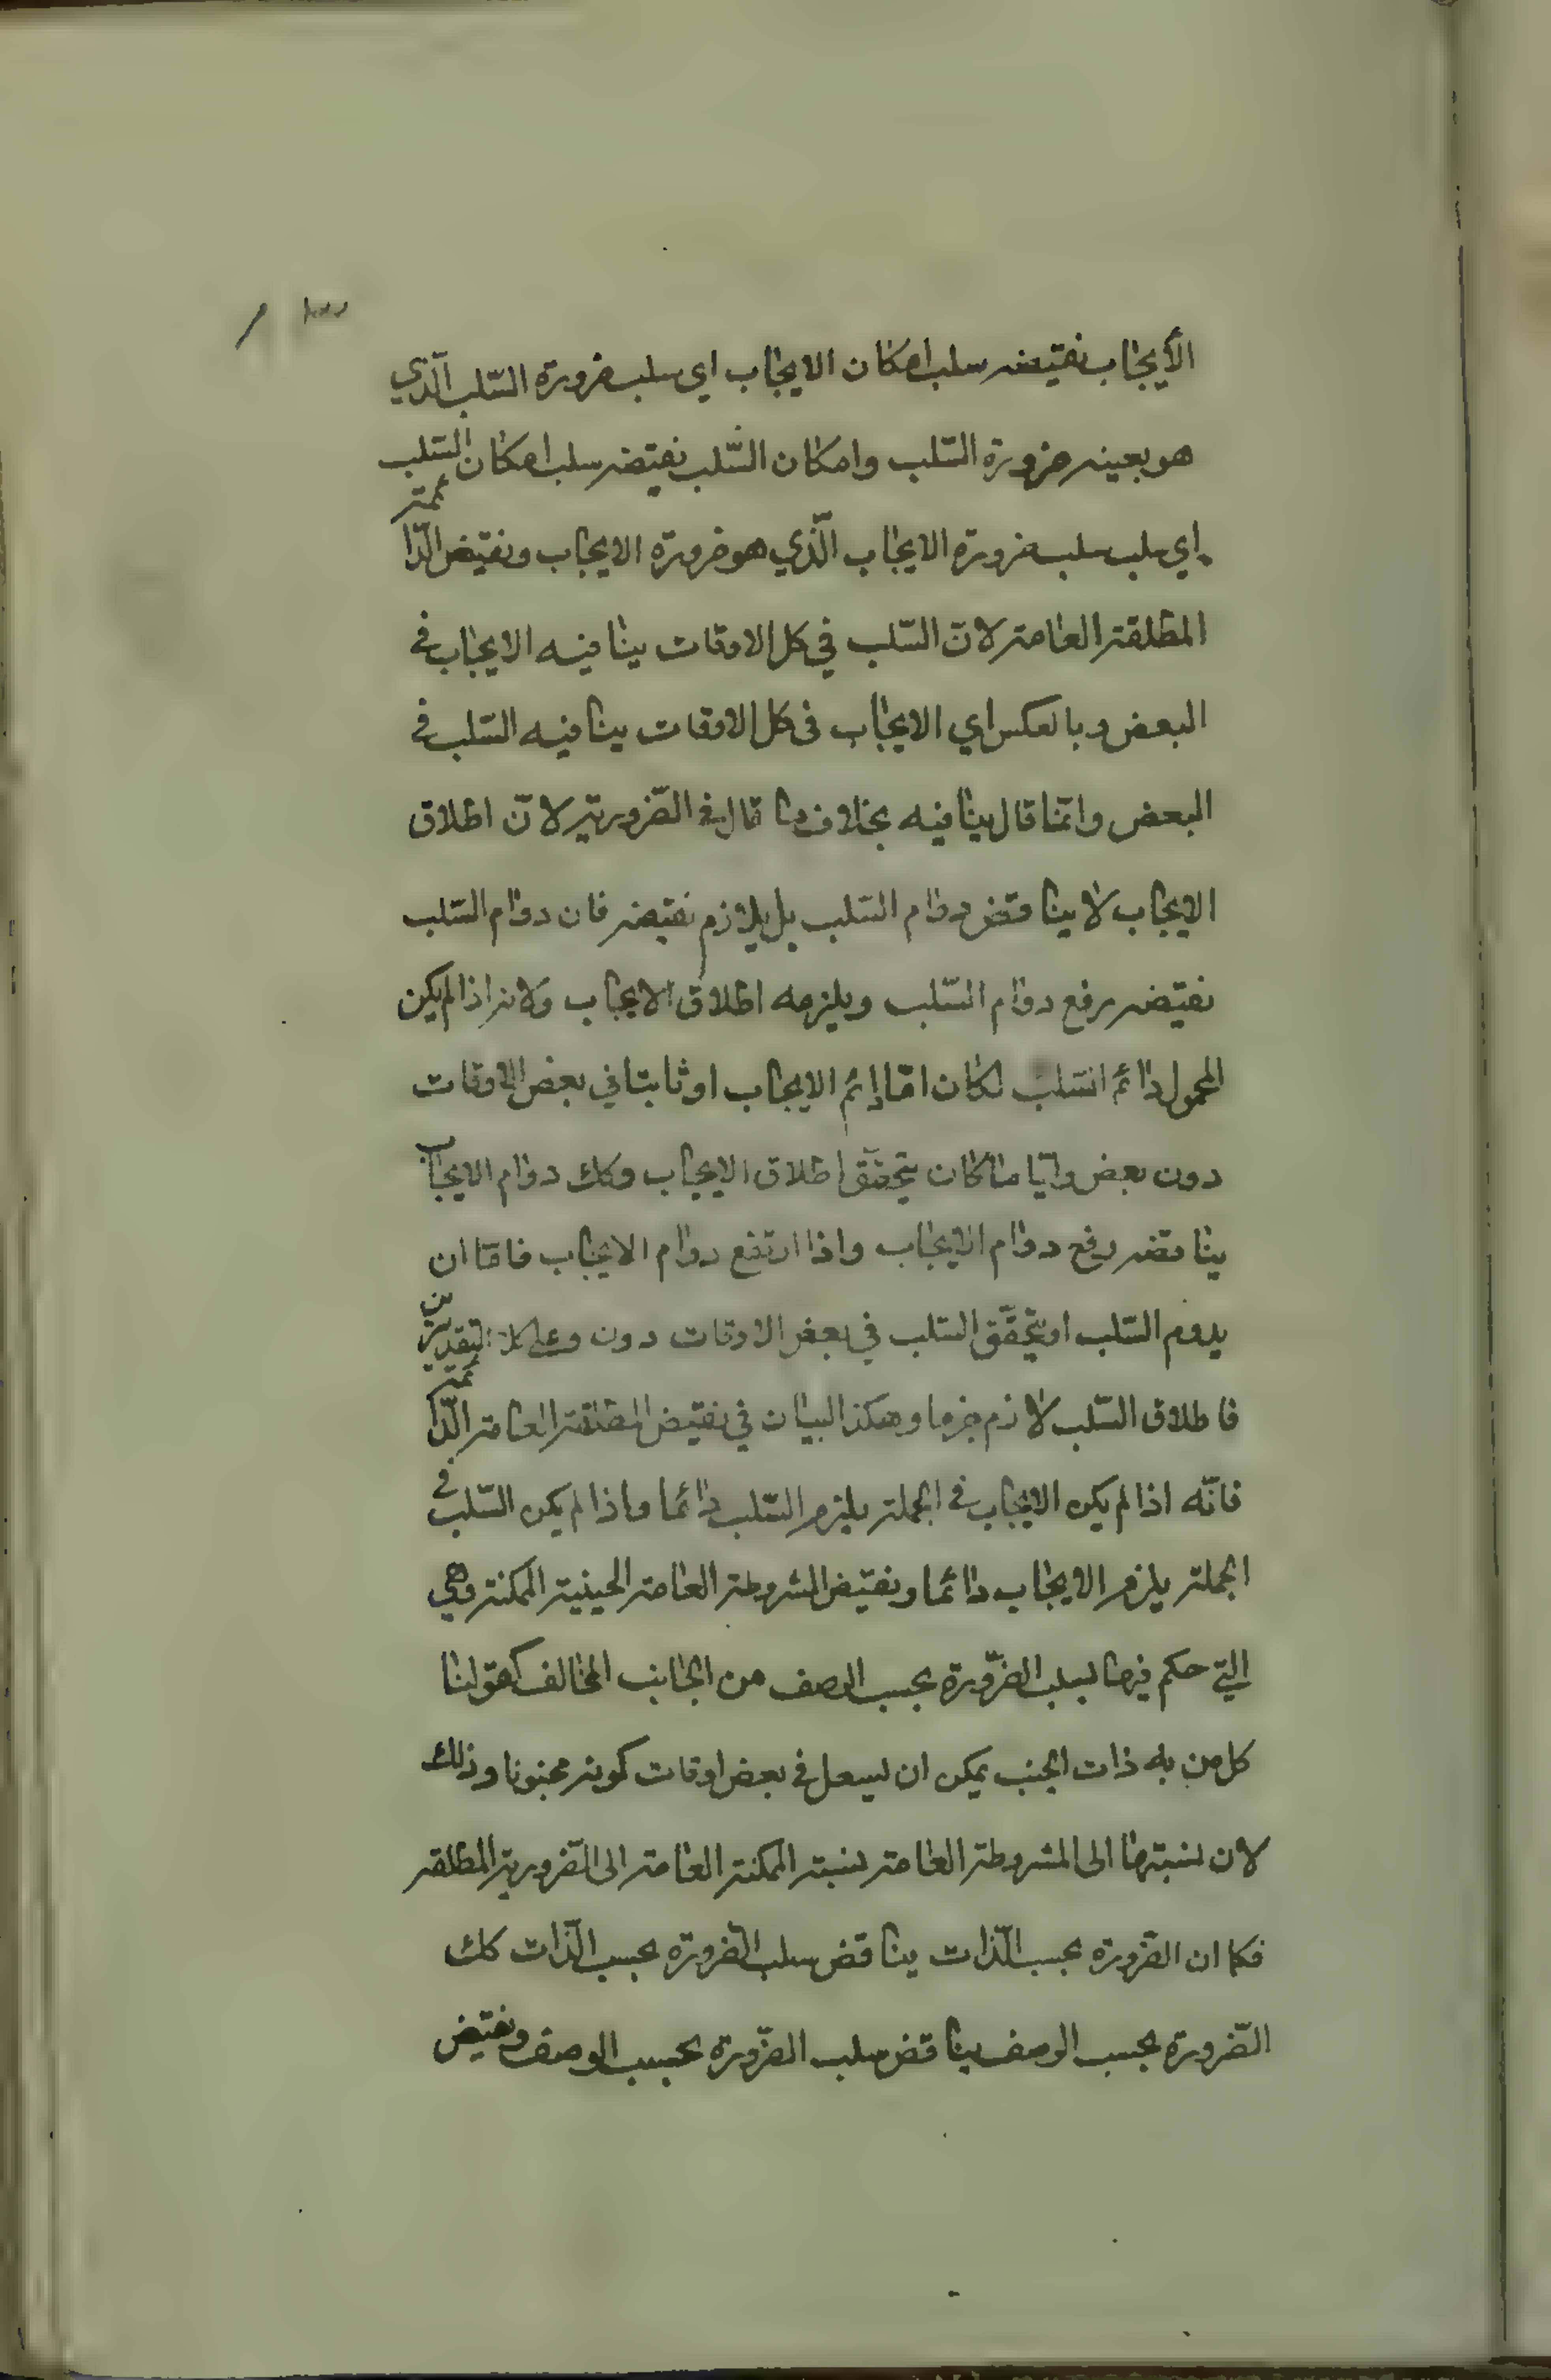 الأيجاب نقيضه سلب امكان الايجاب اي سلب ضرورة السّلب الّذي
هو بعينه ضرورة السّلب وامكان السّلب نقيضه سلب امكان السّلب
اي سلب سلب ضرورة الايجاب الّذي هو ضرورة الايجاب ونقيض الدّائمة
المطلقة العامة لانّ السّلب في كل الاوقات ينافيه الايجاب في
البعض وبالعكس اي الايجاب في كل الاوقات ينافيه السّلب في
البعض وانّما قال ينافيه بخلاف ما قال في الضّرورية لانّ اطلاق
الايجاب لا يناقض دوام السّلب بل يلازم نقيضه فان دوام السّلب
نقيضه رفع دوام السّلب ويلزمه اطلاق الايجاب ولانه اذا لم يكن
المحمول دائم السّلب لكان امّا دائم الايجاب او ثابتا في بعض الاوقات
دون بعض وايّا ما كان يتحقّق اطلاق الايجاب وكك دوام الايجاب
يناقضه رفع دوام الايجاب واذا ارتفع دوام الايجاب فامّا ان
يدوم السّلب او يتحقّق السّلب في بعض الاوقات دون وعلى كلا التقديرين
فاطلاق السّلب لازم جزما وهكذا البيان في نقيض المطلقة العامة الدّائمة
فانّه اذا لم يكن الايجاب في الجملة يلزم السّلب دائما واذا لم يكن السّلب في
الجملة يلزم الايجاب دائما ونقيض المشروطة العامة الحينية الممكنة وهي
التي حكم فيها بسلب الضّرورة بحسب الوصف من الجانب المخالف كقولنا
كل من به ذات الجنب يمكن ان يسعل في بعض اوقات كونه مجنوبا وذلك
لان نسبتها الى المشروطة العامة نسبة الممكنة العامة الى الضّرورية المطلقة
فكما ان الضّرورة بحسب الّذات يناقض سلب الضّرورة بحسب الّذات كك
الضّرورة بحسب الوصف يناقض سلب الضّرورة بحسب الوصف ونقيض